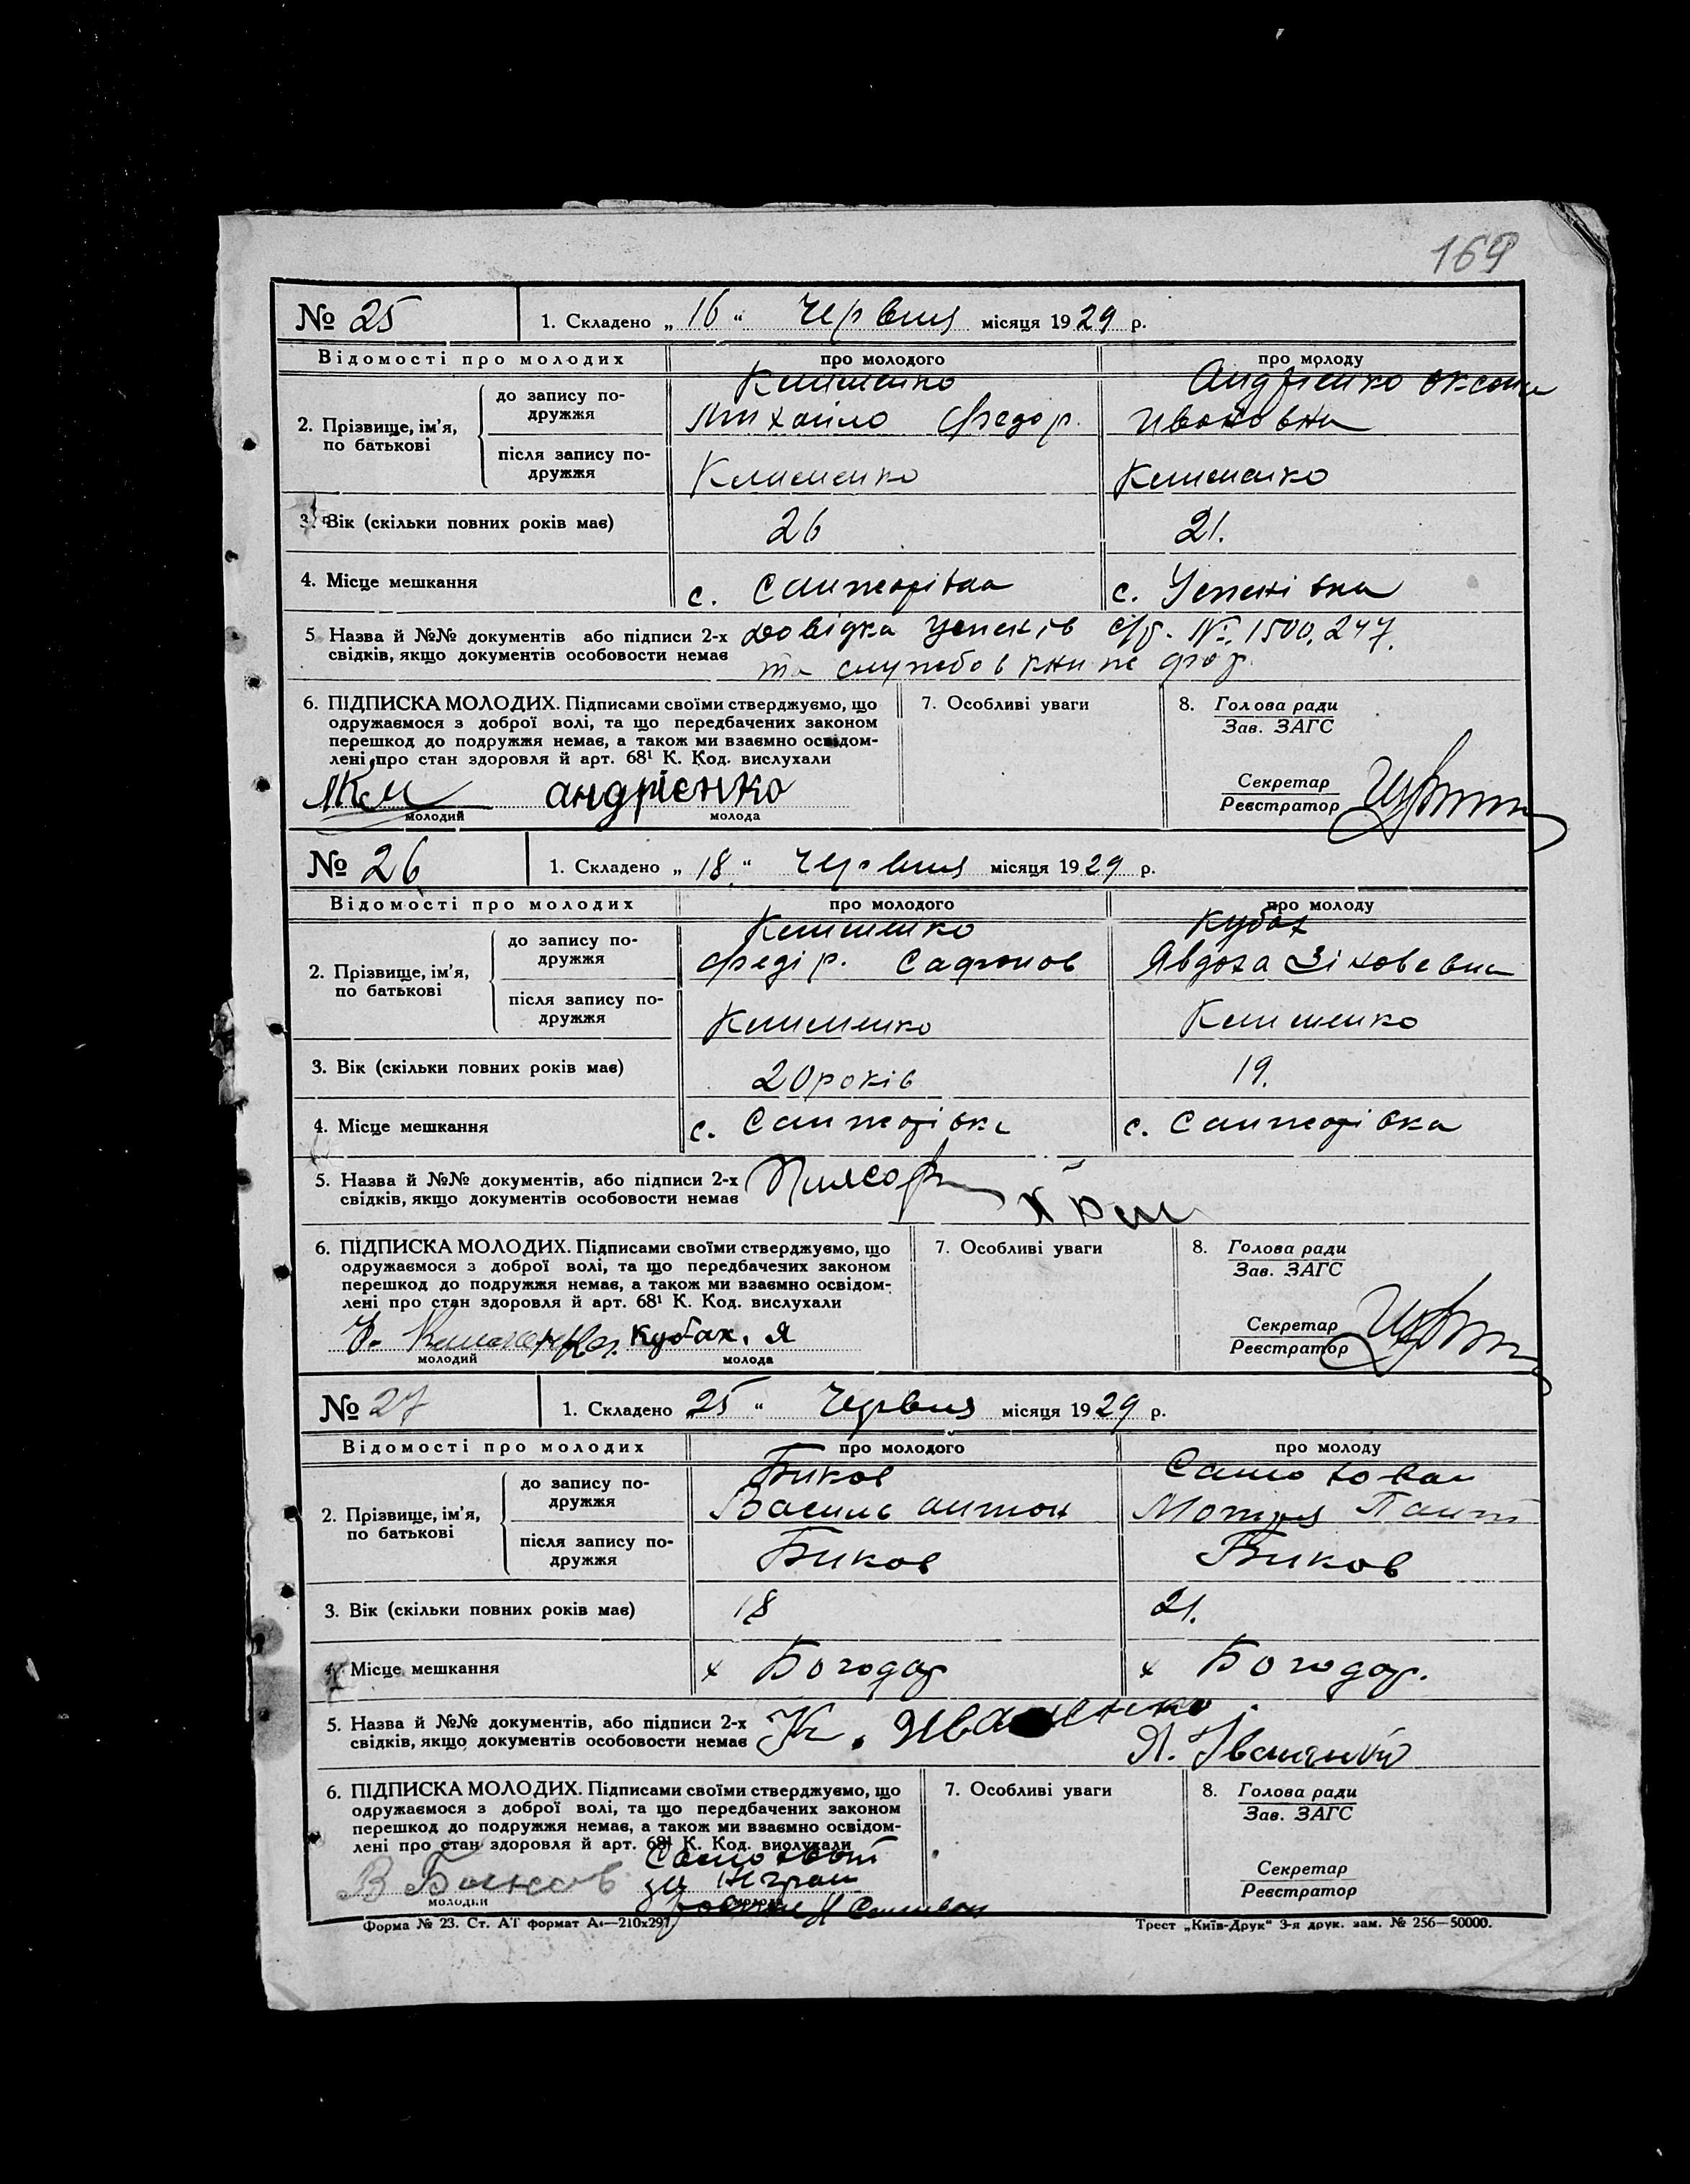 169
№ 25 1. Складено „ 16 “ Червня місяця 1929 р.
Відомості про молодих про молодого про молоду
2. Прізвище, ім’я, по батькові
до запису по-
дружжя
Клименко
Михайло Федор.
Андрієнко Оксана
Ивановна
після запису по-
дружжя
Клименко Клименко
3. Вік (скільки повних років має) 26 21.
4. Місце мешкання с. Санжарівка с. Успенівка
5. Назва й №№ документів або підписи 2-х Довідка Успенів с/р. №. 1500.247.
свідків, якщо документів особовости немає та службов книже
6. ПІДПИСКА МОЛОДИХ. Підписами своїми стверджуємо, що
одружаємося з доброї волі, та що передбачених законом
перешкод до подружжя немає, а також ми взаємно освідом-
лені про стан здоровля й арт. 68¹ К. Код. вислухали
андрієнко
молодий молода
7. Особливі уваги
8. Голова ради
Зав. ЗАГС
Секретар
Реєстратор
№ 26 1. Складено „ 18. “ Червня місяця 1929 р.
Відомості про молодих про молодого про молоду
2. Прізвище, ім’я, по батькові
до запису по-
дружжя
Клименко
Федір. Сафонов
Кубах
Явдоха Зіновевна
після запису по-
дружжя
Клименко Клименко
3. Вік (скільки повних років має) 20 років 19.
4. Місце мешкання с. Санжарівка с. Санжарівка
5. Назва й №№ документів, або підписи 2-х
свідків, якщо документів особовости немає
6. ПІДПИСКА МОЛОДИХ. Підписами своїми стверджуємо, що
одружаємося з доброї волі, та що передбачених законом
перешкод до подружжя немає, а також ми взаємно освідом-
лені про стан здоровля й арт. 68¹ К. Код. вислухали
Кубах. Я
молодий молода
7. Особливі уваги
8. Голова ради
Зав. ЗАГС
Секретар
Реєстратор
№ 27 1. Складено 25 “ Червня місяця 1929 р.
Відомості про молодих про молодого про молоду
2. Прізвище, ім’я, по батькові
до запису по-
дружжя
Биков
Василь Антон
Мотря
після запису по-
дружжя
Биков Биков
3. Вік (скільки повних років має) 18 21.
4. Місце мешкання х Богодар х Богодар.
5. Назва й №№ документів, або підписи 2-х К. Иваненко
свідків, якщо документів особовости немає
6. ПІДПИСКА МОЛОДИХ. Підписами своїми стверджуємо, що
одружаємося з доброї волі, та що передбачених законом
перешкод до подружжя немає, а також ми взаємно освідом-
лені про стан здоровля й арт. 68¹ К. Код. вислухали
В Биков
молодий молода
7. Особливі уваги
8. Голова ради
Зав. ЗАГС
Секретар
Реєстратор
Форма № 23. Ст. АТ формат А₄—210х297 Трест „Київ-Друк“ 3-я друк. зам. № 256—50000.